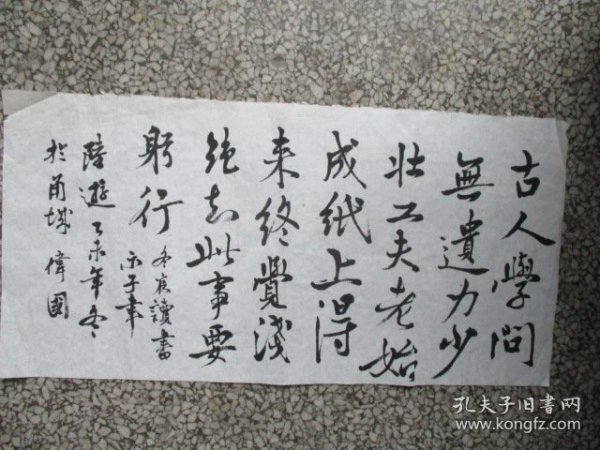 古人學問
無遺力少
壯工夫老始
成紙上得
来終覺淺
絶知此事要
躬行
冬夜讀書
示子聿
陸遊 乙未年冬
於甬城 偉國
孔夫子旧書网
www.kongfz.com